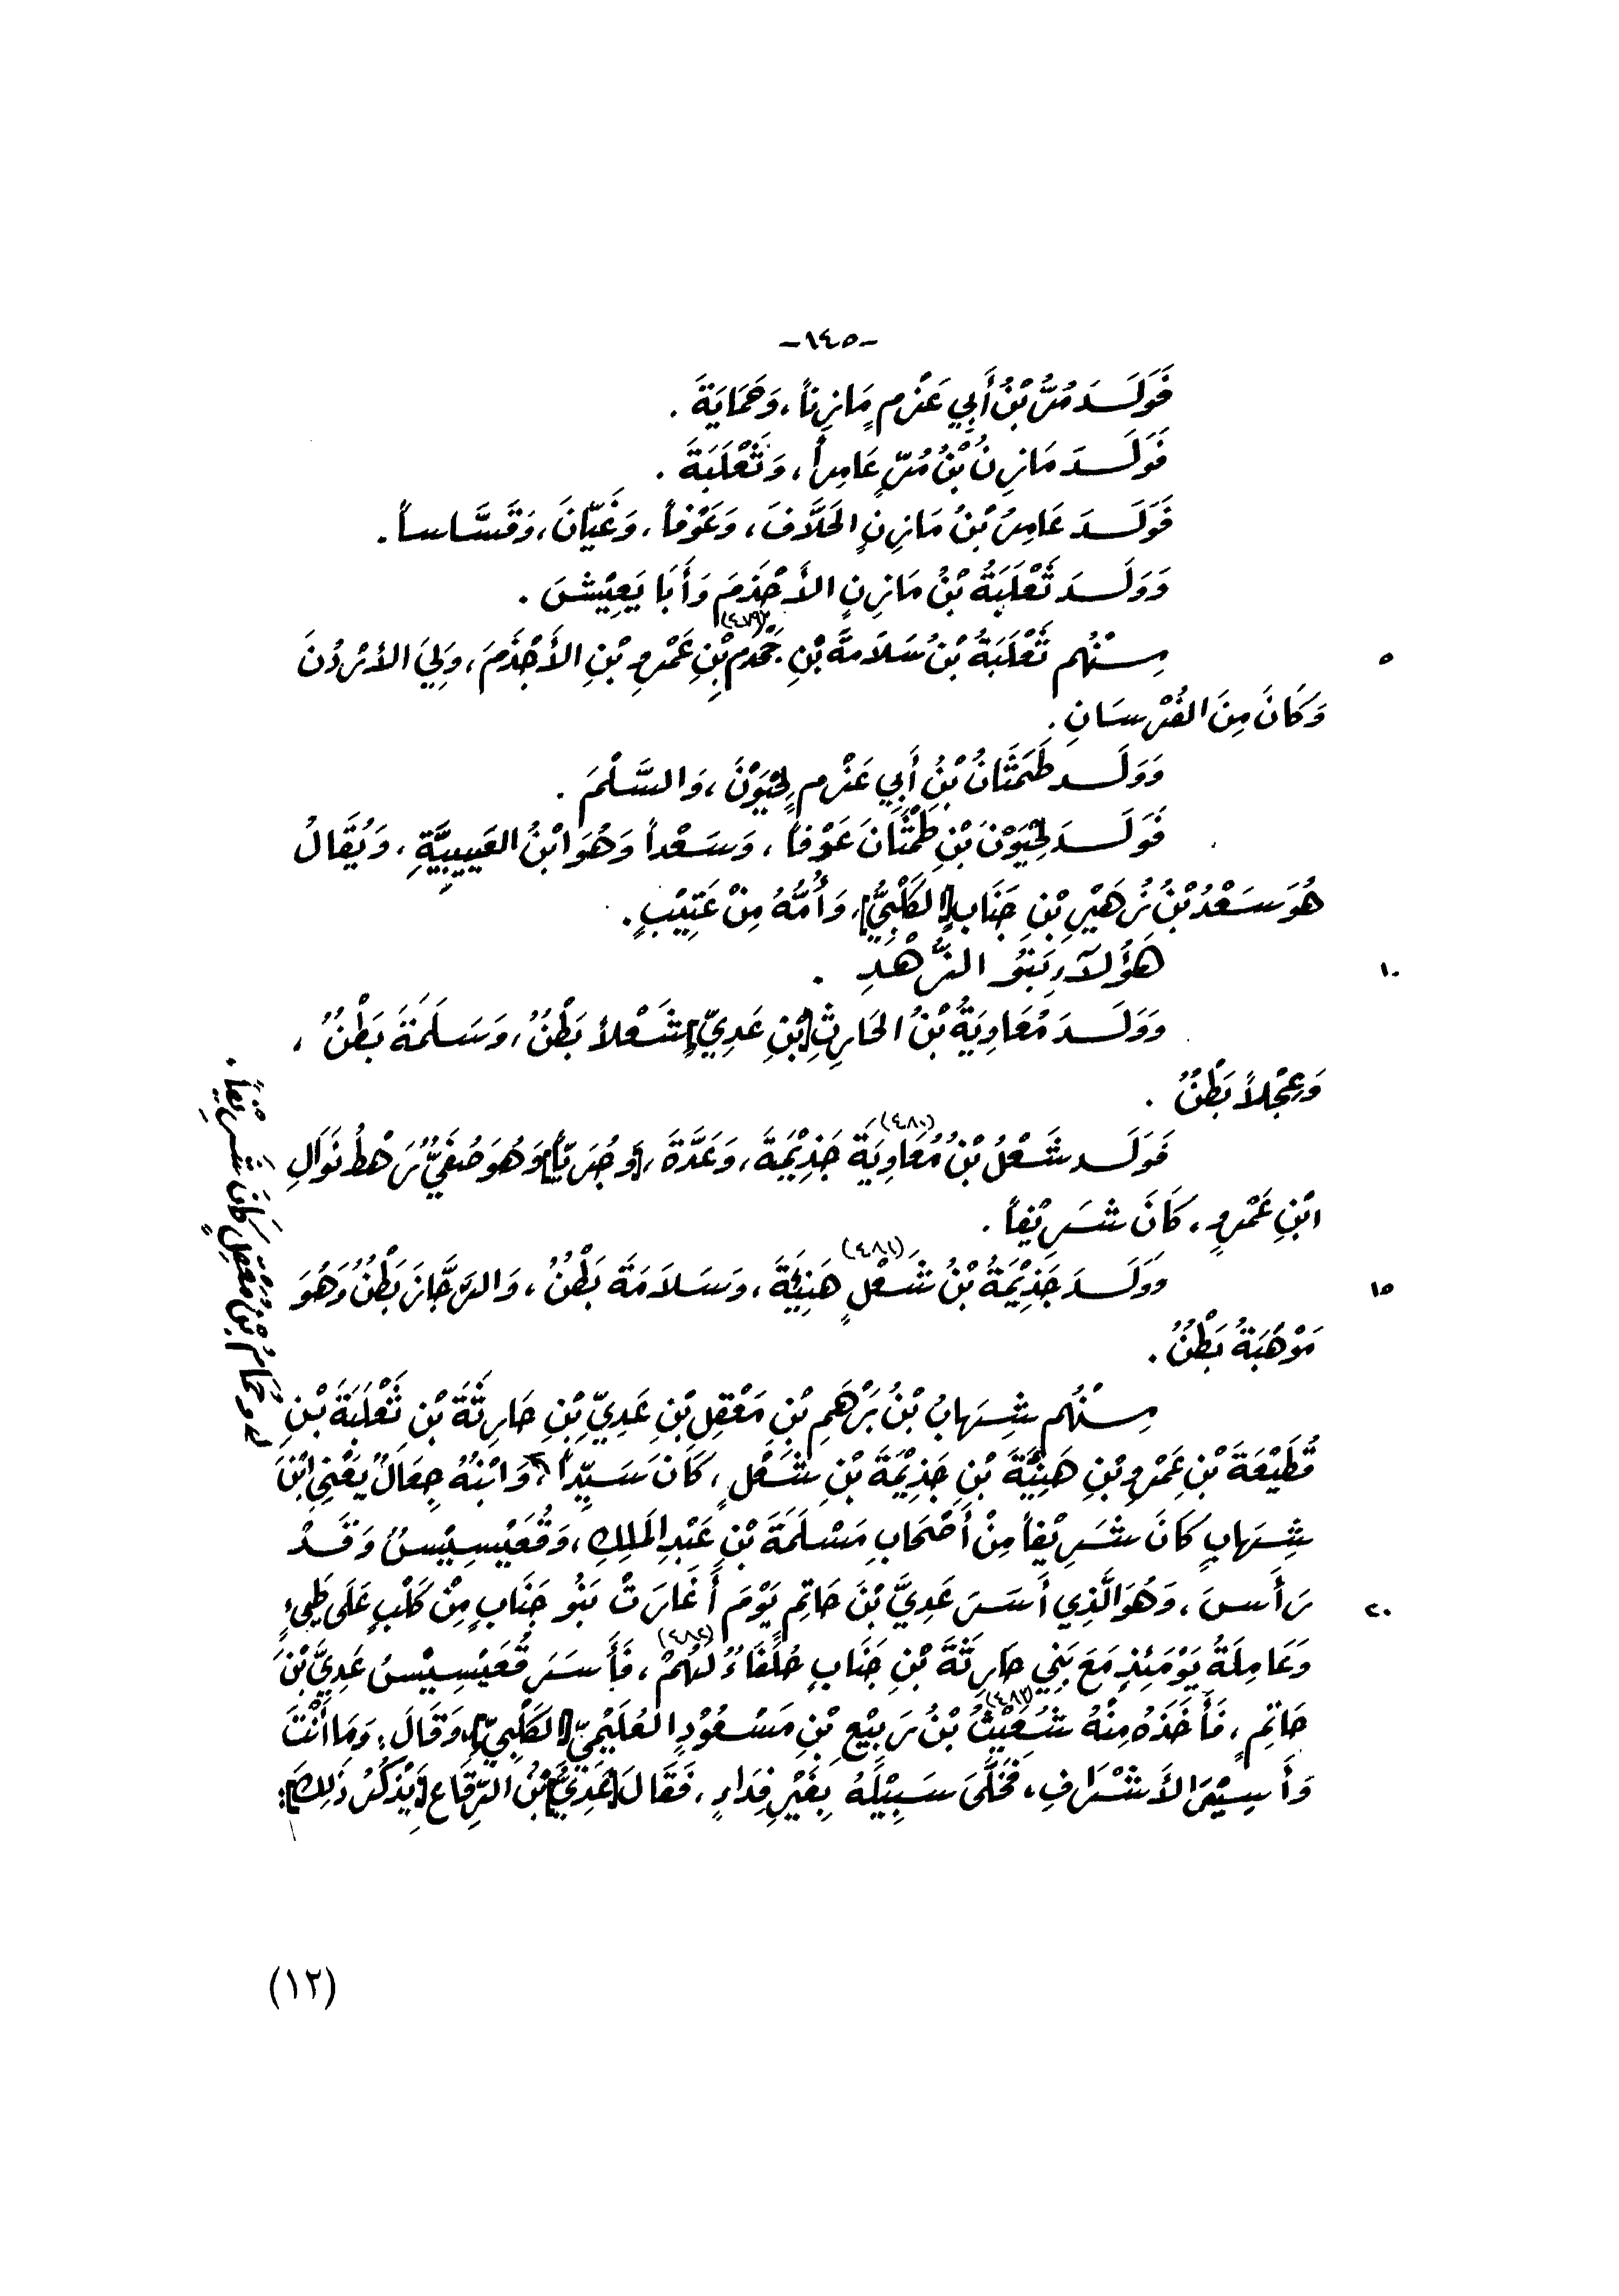 -١٤٥-
فَوَلَدَ مُرُّ بْنُ أَبِي عَزْمٍ مَازِناً، وَحَمَايَةَ.
فَوَلَدَ مَازِنُ بْنُ مُرٍّ عَامِراً، وَثَعْلَبَةَ.
فَوَلَدَ عَامِرُ بْنُ مَازِنٍ الحَلَّافَ، وَعَوْفاً، وَغَيَّانَ، وَقَسَّاساً.
وَوَلَدَ ثَعْلَبَةُ بْنُ مَازِنٍ الأَجْذَمَ وَأَبَا يَعِيْشَ.
٥ مِنْهُم ثَعْلَبَةُ بْنُ سَلَامَةَ بْنِ جَحْدَمِ (٤٧٩) بْنِ عَمْرِو بْنِ الأَجْذَمَ، وَلِيَ الأُرْدُنَ
وَكَانَ مِنَ الفُرْسَانِ.
وَوَلَدَ طَمَثَانُ بْنُ أَبِي عَزْمٍ لِحْيَوْنَ، وَالسَّلْمَ.
فَوَلَدَ لِحْيَوْنَ بْنِ طَمْثَانَ عَوْفاً، وَسَعْداً وَهُوَ ابْنُ العَيِيبِيَّةِ، وَيُقَالُ
هُوَ سَعْدُ بْنُ زُهَيْرِ بْنِ جَنَابٍ [الكَلْبِيُّ]، وَأُمُّهُ مِنْ عَتِيْبٍ.
١٠ هَؤُلَآءِ بَنُو الزُّهْدِ.
وَوَلَدَ مُعَاوِيَةُ بْنُ الحَارِثِ [بْنِ عَدِيٍّ] شَعْلاً بَطْنٌ، وَسَلَمَةَ بَطْنٌ،
وَعِجْلاً بَطْنٌ.
فَوَلَدَ شَعْلُ بْنُ مُعَاوِيَةَ (٤٨٠) جَذِيْمَةَ، وَعَدَّةَ، [وَجُرَيّاً] وَهُوَ صُفَيُّ رَهْطُ نَوَالِ
ابْنِ عَمْرٍو، كَانَ شَرِيْفاً.
١٥ وَوَلَدَ جَذِيْمَةُ بْنُ شَعْلٍ (٤٨١) هَنِيَّةَ، وَسَلَامَةَ بَطْنٌ، وَالرَّجَّازَ بَطْنٌ وَهُوَ
مَوْهَبَةُ بَطْنٌ.
مِنْهُم شِهَابُ بْنُ بَرْهَمِ بْنِ مَعْقِلِ بْنِ عَدِيِّ بْنِ حَارِثَةَ بْنِ ثَعْلَبَةَ بْنِ
قُطَيْعَةَ بْنِ عَمْرِو بْنِ هَنِيَّةَ بْنِ جَذِيْمَةَ بْنِ شَعْلٍ، كَانَ سَيِّداً، وَابْنُهُ جِعَالٌ يَعْنِي ابْنَ
شِهَابٍ كَانَ شَرِيْفاً مِنْ أَصْحَابِ مَسْلَمَةَ بْنِ عَبْدِ المَلِكِ، وَقُعَيْسِيْسُ وَقَدْ
٢٠ رَأَسَ، وَهُوَ الَّذِي أَسَرَ عَدِيَّ بْنَ حَاتِمٍ يَوْمَ أَغَارَتْ بَنُو جَنَابٍ مِنْ كَلْبٍ عَلَى طَيِّءٍ
وَعَامِلَةُ يَوْمَئِذٍ مَعَ بَنِي حَارِثَةَ بْنِ جَنَابٍ حُلَفَاءُ لَهُمْ (٤٨٢)، فَأَسَرَ قُعَيْسِيْسُ عَدِيَّ بْنَ
حَاتِمٍ، فَأَخَذَهُ مِنْهُ شُعَيْثُ (٤٨٣) بْنُ رَبِيْعِ بْنِ مَسْعُوْدٍ العُلَيْمِيّ [الكَلْبِيّ]، وَقَالَ: وَمَا أَنْتَ
وَأَسِيْرَ الأَشْرَافِ، فَخَلَّى سَبِيْلَهُ بِغَيْرِ فِدَاءٍ، فَقَالَ [عَدِيُّ] بْنُ الرِّقَاعِ [يَذْكُرُ ذَلِكَ]:
وهمَّامُ بْنُ مَعْقِلٍ كَانَ شَرِيْفاً.
(١٢)